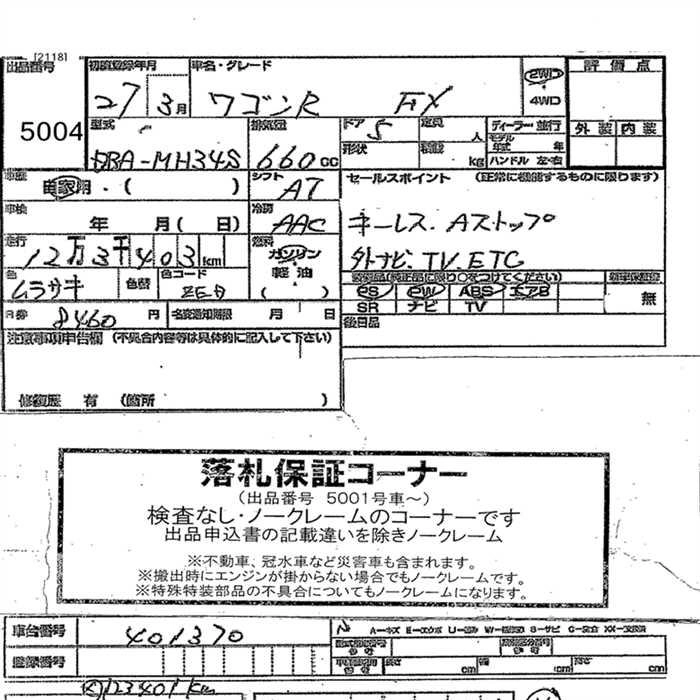 [2118]
出品番号 初度登録年月 車名・グレード 2WD 4WD 評価点
5004 27 3月 ワゴンR FX
型式 排気量 ドア 定員 人 ディーラー・並行 外装 内装
DBA-MH34S 660cc 5 形状 積載 kg モデル年式 年 ハンドル 左・右
車歴 自家用・( ) シフト AT セールスポイント (正常に機能するものに限ります)
車検 年 月( 日) 冷房 AAC キーレス. Aストップ
走行 12万3千403km 燃料 ガソリン 軽油 ( ) 外ナビ. TV. ETC
色 ムラサキ 色替 色コード ZEA
装備品(純正品に限り○をつけてください) 新車保証書
PS PW ABS エアB 無
SR ナビ TV
R券 8460円 名変通知期限 月 日 後日品
注意事項申告欄 (不具合内容等は具体的に記入して下さい)
修復歴 有 (箇所 )
落札保証コーナー
(出品番号 5001号車～)
検査なし・ノークレームのコーナーです
出品申込書の記載違いを除きノークレーム
※不動車、冠水車など災害車も含まれます。
※搬出時にエンジンが掛からない場合でもノークレームです。
※特殊特装部品の不具合についてもノークレームになります。
車台番号 401370
登録番号
cm cm cm
123401km